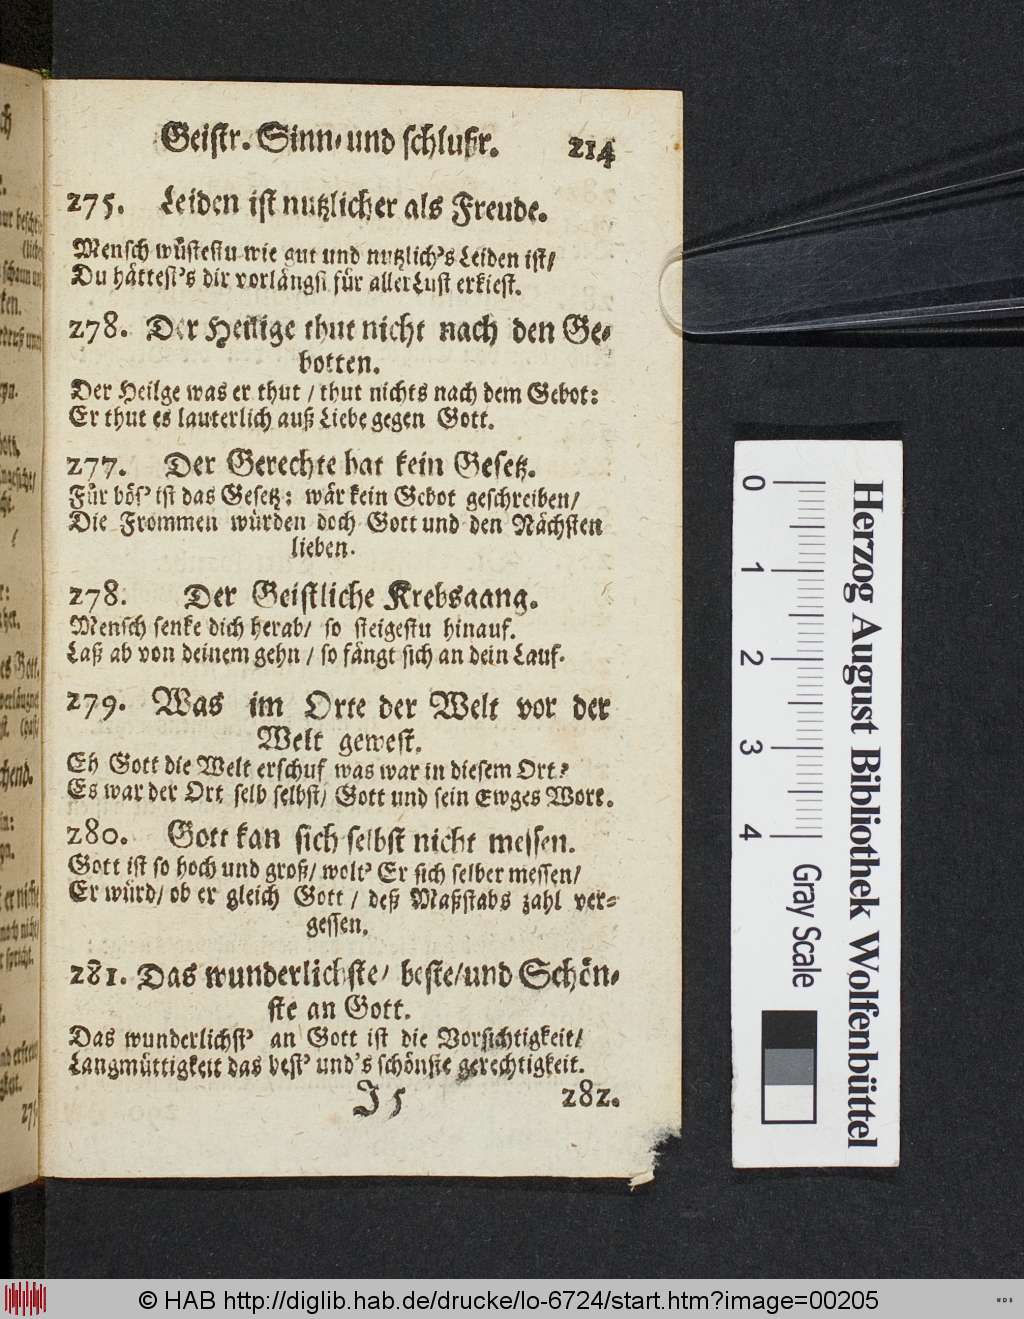 Geistr. Sinn- und schlußr. 214
275. Leiden ist nutzlicher als Freude.
Mensch wüstestu wie gut und nutzlich's Leiden ist/
Du hättest's dir vorlängst für aller Lust erkiest.
278. Der Heilige thut nicht nach den Ge-
botten.
Der Heilge was er thut / thut nichts nach dem Gebot:
Er thut es lauterlich auß Liebe gegen Gott.
277. Der Gerechte hat kein Gesetz.
Für bös' ist das Gesetz: wär kein Gebot geschreiben/
Die Frommen würden doch Gott und den Nächsten
lieben.
278. Der Geistliche Krebsgang.
Mensch senke dich herab/ so steigestu hinauf.
Laß ab von deinem gehn / so fängt sich an dein Lauf.
279. Was im Orte der Welt vor der
Welt gewest.
Eh Gott die Welt erschuf was war in diesem Ort?
Es war der Ort selb selbst/ Gott und sein Ewges Wort.
280. Gott kan sich selbst nicht messen.
Gott ist so hoch und groß/ wolt' Er sich selber messen/
Er würd/ ob er gleich Gott / deß Maßstabs zahl ver-
gessen.
281. Das wunderlichste/ beste/und Schön-
ste an Gott.
Das wunderlichst' an Gott ist die Vorsichtigkeit/
Langmüttigkeit das best' und's schönste gerechtigkeit.
J 5 282.
0 1 2 3 4
Gray Scale
Herzog August Bibliothek Wolfenbüttel
© HAB http://diglib.hab.de/drucke/lo-6724/start.htm?image=00205